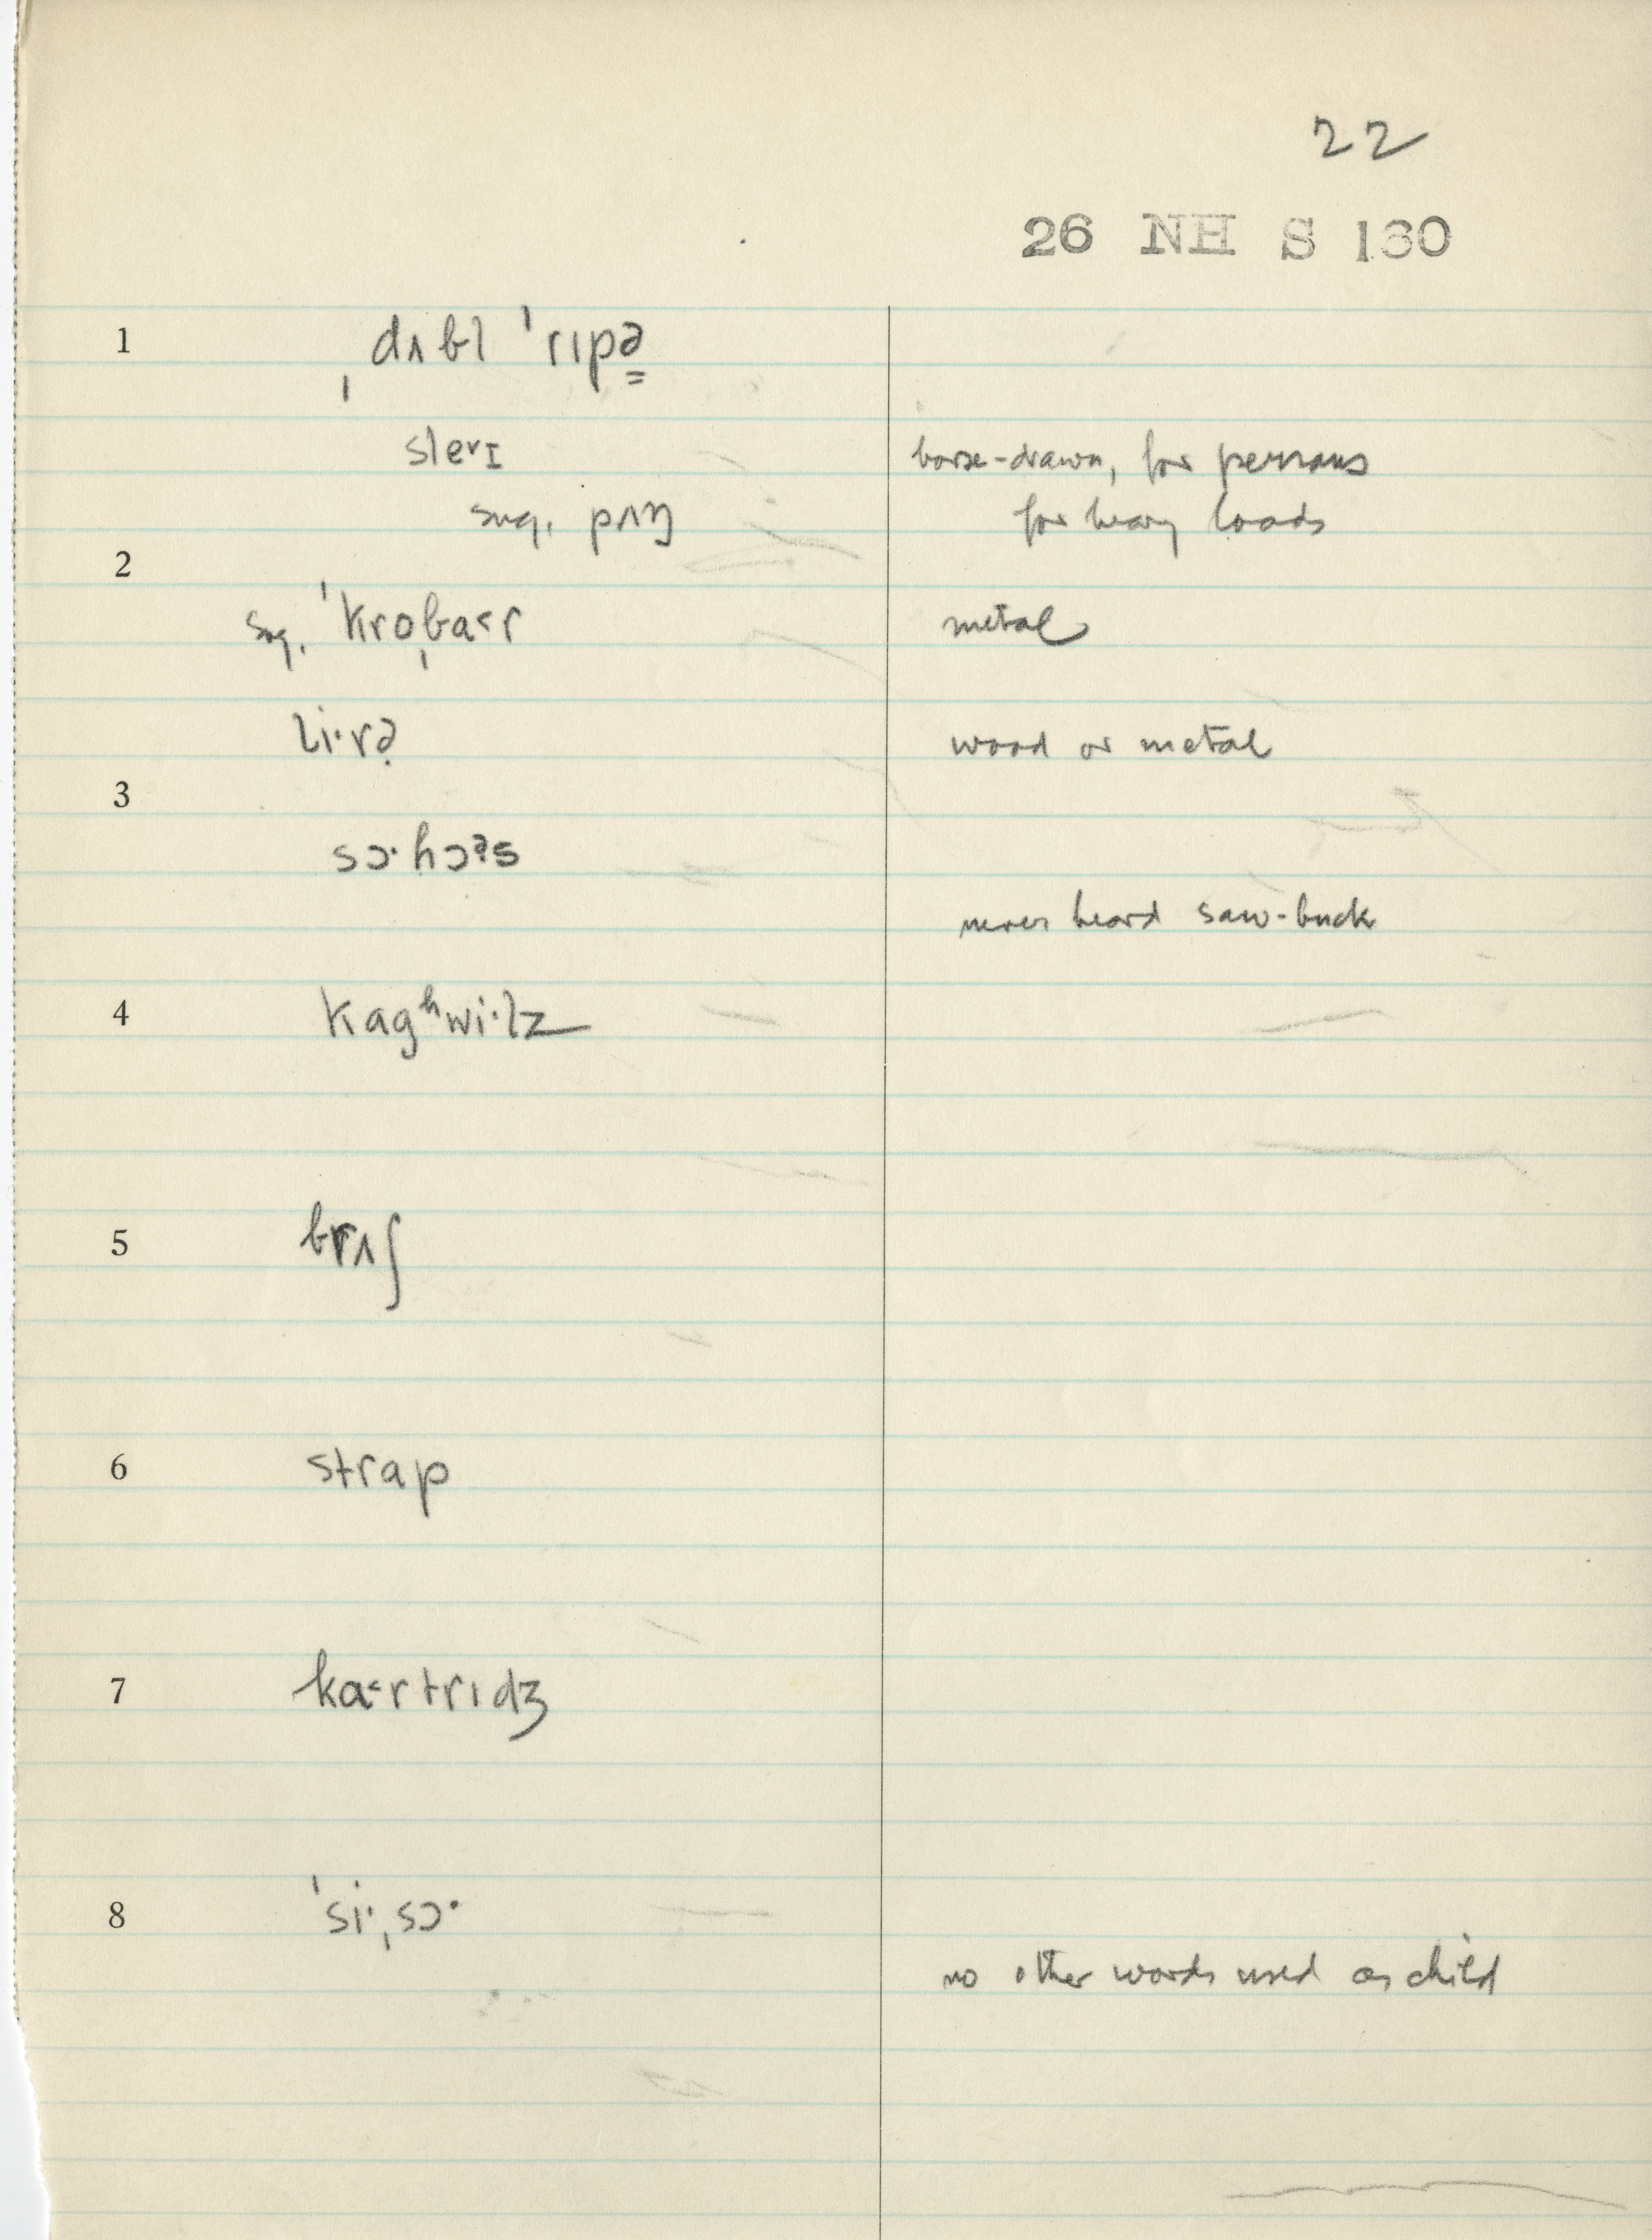 22
26 NH S 130
1 ˌdʌbl ˈrɪpə̳
sleɪvɪ horse-drawn, for persons
sug. pʌŋ for heavy loads
2
sug. ˈkroˌba˂r metal
li·və̣ wood or metal
3
sɔ·hɔᵊs
never heard saw-buck
4 kagʰwi·lz
5 brʌʃ
6 strap
7 ka˂rtrɪdʒ
8 ˈsi·ˌsɔ·
no other words used as child